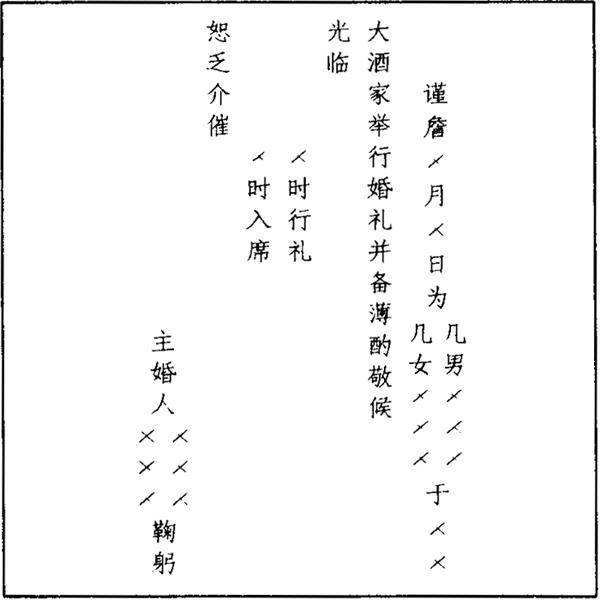 谨詹×月×日为
几男×××
几女×××
于××
大酒家举行婚礼并备薄酌敬候
光临
×时行礼
×时入席
恕乏介催
主婚人
×××
×××
鞠躬